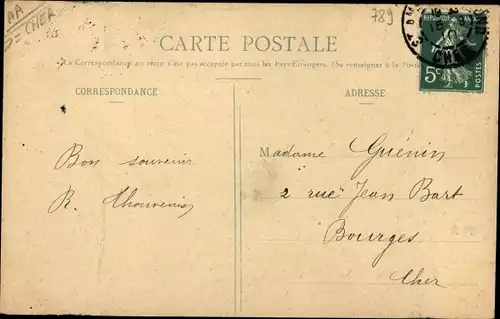 AA
= CHER
789
CARTE POSTALE
La Correspondance au recto n'est pas acceptée par tous les Pays Etrangers. (Se renseigner à la Poste
CORRESPONDANCE
ADRESSE
REPUBLIQUE
5c
POSTES
CHER
Bon souvenir
R. Thouvenin
Madame Guénin
2 rue Jean Bart
Bourges
Cher